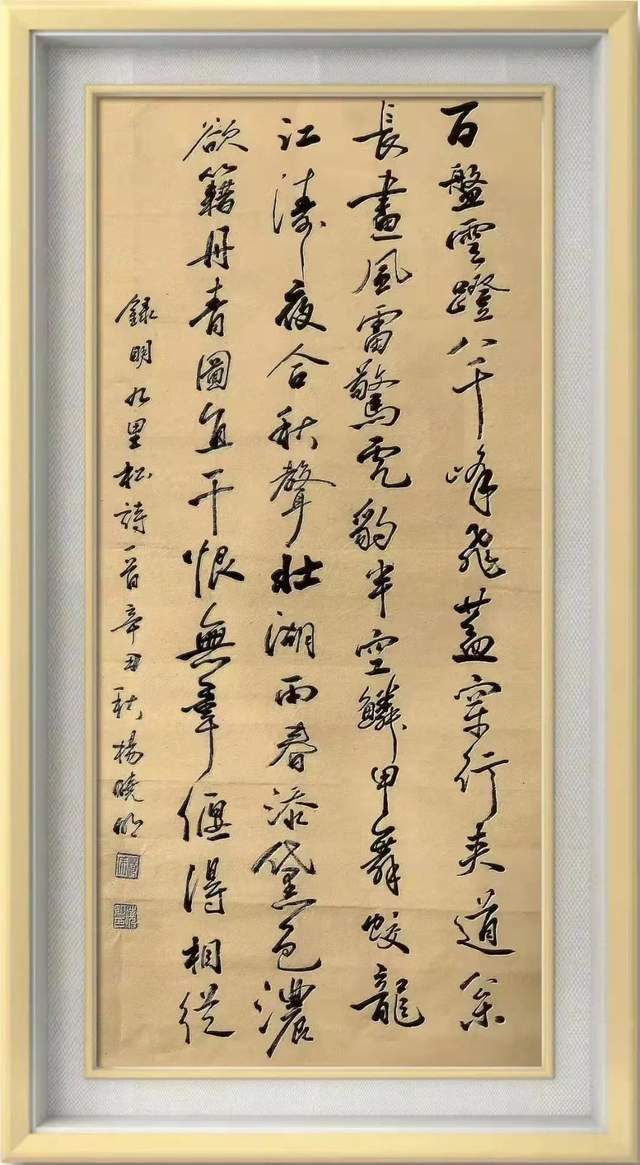 百盤雲蹬八千峰飛蓋穿行夾道枀
長晝風雷驚虎豹半空鱗甲舞蛟龍
江濤夜合秋聲壯湖雨春添黛色濃
欲籍丹青圖直干恨無韋偃得相從
錄明九里松詩一首辛丑秋楊曉明